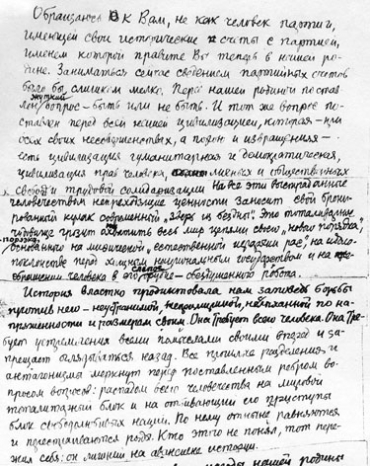 Обращаюсь к Вам, не как человек партии,
имеющей свои исторические счеты с партией,
именем которой правите Вы теперь в нашей ро-
дине. Заниматься сейчас сведением партийных счетов
было бы слишком мелко. Перед нашей родиной постав-
лен вопрос – быть или не быть. И тот же вопрос по-
ставлен перед всей нашей цивилизацией, которая – при
всех своих несовершенствах, а подчас и извращениях –
есть цивилизация гуманитарная и демократическая,
цивилизация прав человека, личных и общественных
свобод и трудовой солидаризации. На все эти выстраданные
человечеством непреходящие ценности заносит свой брони-
рованный кулак современный „зверь из бездны". Это тоталитарное
чудовище грозит охватить весь мир цепями своего „нового порядка",
порядка,
основанного на мифической, естественной иерархии рас, на идоло-
поклонстве перед хищным национальным государством и на пре-
вращении человека в его слепое орудие –
робота.
История властно продиктовала нам заповедь борьбы
против него – неустранимой, непримиримой, небывалой по на-
пряженности и размерам своим. Она требует всего человека. Она тре-
бует устремления всеми помыслами своими вперед и за-
прещает оглядываться назад. Все прошлые разделения и
антагонизмы меркнут перед поставленным ребром во-
просом вопросов: распадом всего человечества на мировой
тоталитарный блок и на отбивающий его приступы
блок свободолюбивых наций. По нему отныне равняются
и перестраиваются ряды. Кто этого не понял, тот пере-
жил себя: он лишний на авансцене истории.
нашей родины